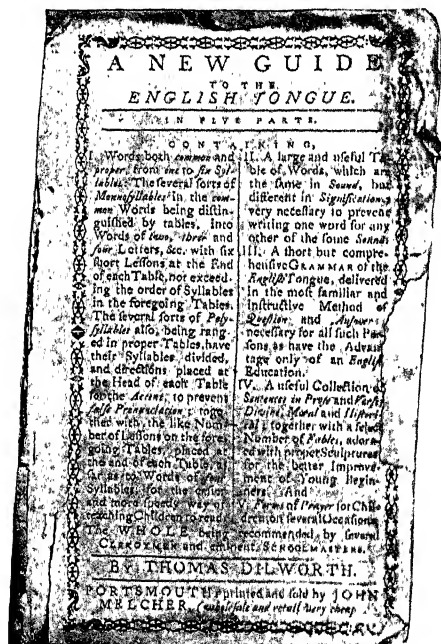 A NEW GUIDE
TO THE
ENGLISH TONGUE.
IN FIVE PARTS.
CONTAINING,
I. Words both common and
proper, from one to six Syl-
lables: The several sorts of
Monosyllables in the com-
mon Words being distin-
guished by tables, into
Words of two, three and
four Letters, &c. with six
short Lessons at the End
of each Table, not exceed-
ing the order of Syllables
in the foregoing Tables.
The several sorts of Poly-
syllables also, being rang-
ed in proper Tables, have
their Syllables divided,
and directions placed at
the Head of each Table
for the Accent, to prevent
false Pronunciation; toge-
ther with the like Num-
ber of Lessons on the fore-
going Tables, placed at
the end of each Table, as
far as to Words of four
Syllables, for the easier
and more speedy way of
teaching Children to read.
II. A large and useful Ta-
ble of Words, which are
the same in Sound, but
different in Signification;
very necessary to prevent
writing one word for any
other of the same Sound.
III. A short but compre-
hensive GRAMMAR of the
English Tongue, delivered
in the most familiar and
instructive Method of
Question and Answer;
necessary for all such Per-
sons as have the Advan-
tage only of an English
Education.
IV. A useful Collection of
Sentences in Prose and Verse,
Divine, Moral and Histori-
cal; together with a select
Number of Fables, adorn-
ed with proper Sculptures
for the better Improve-
ment of Young Begin-
ners. And
V. Forms of Prayer for Chil-
dren, on several Occasions.
The WHOLE being recommended by several
CLERGYMEN and eminent SCHOOLMASTERS.
BY THOMAS DILWORTH.
PORTSMOUTH printed and sold by JOHN
MELCHER, (wholesale and retail) very cheap